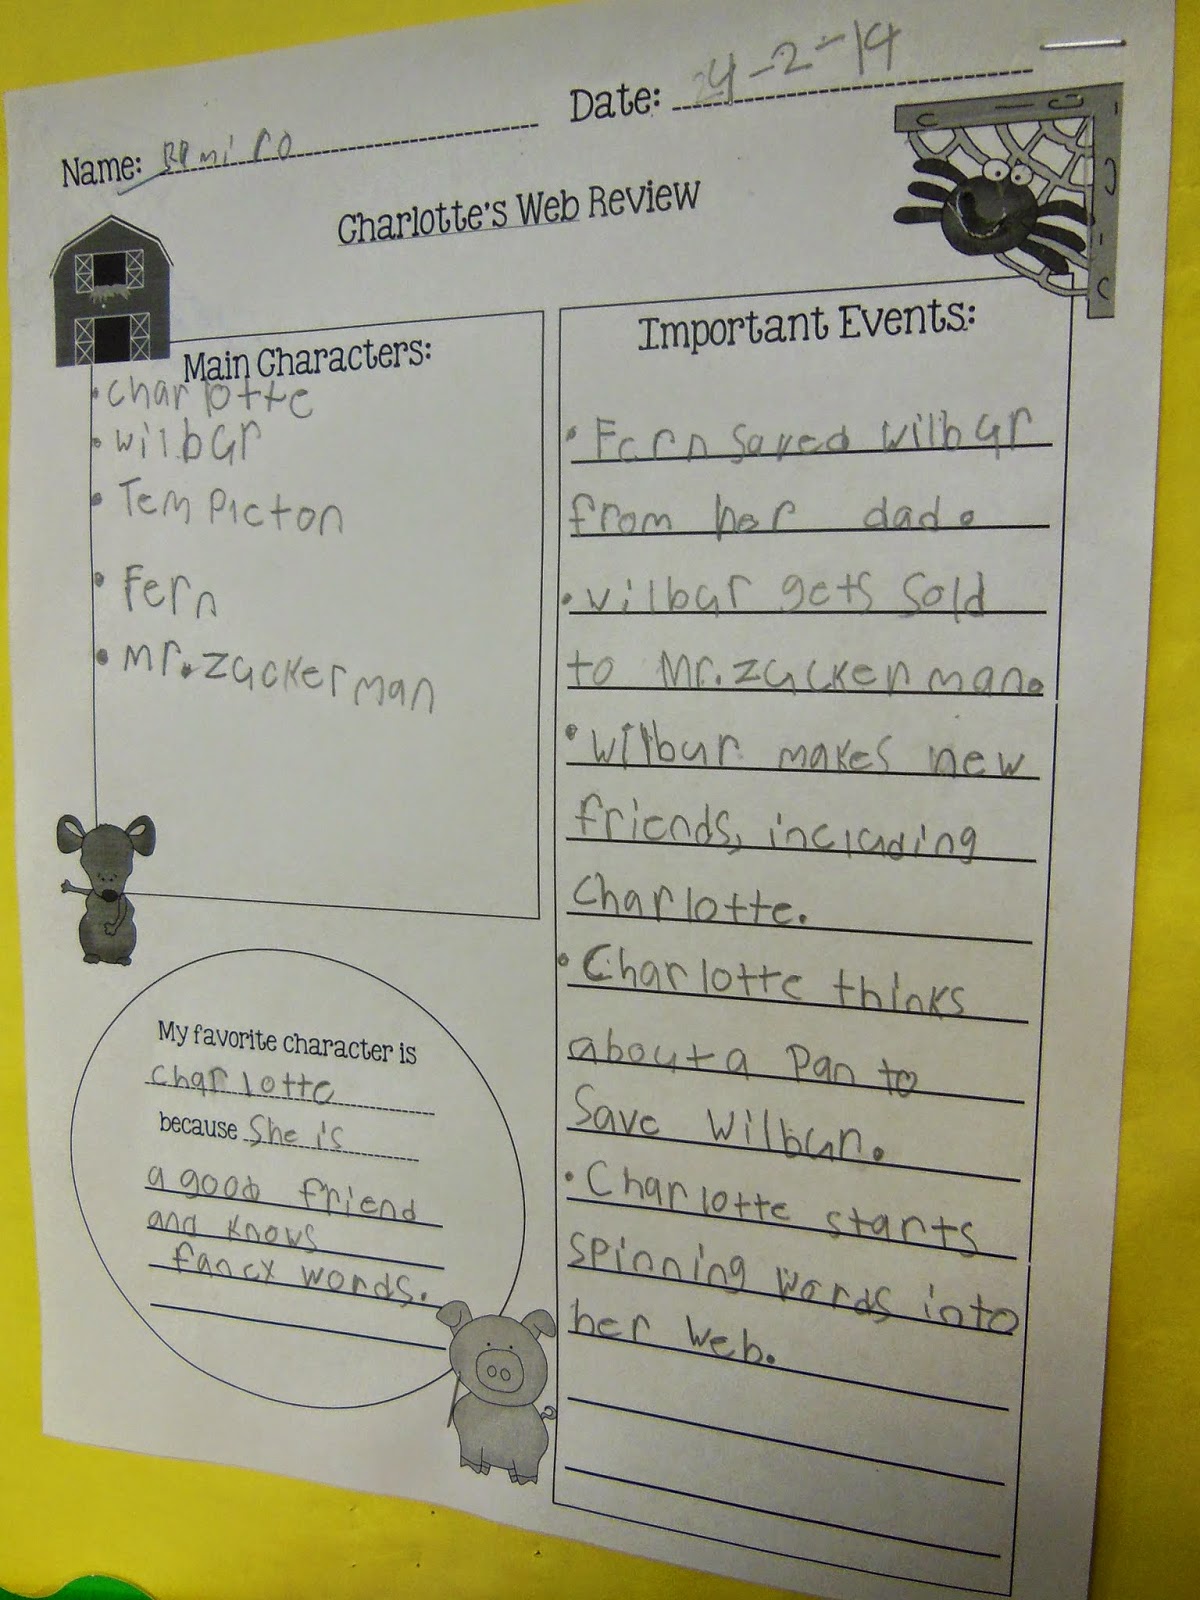 Name: Date: 24-2-14
Charlotte's Web Review
Main Characters:
• Charlotte
• Wilbur
• Tempicton
• Fern
• Mr. Zuckerman
My favorite character is
Charlotte
because She is
a good friend
and knows
fancy words.
Important Events:
• Fern saved Wilbur
from her dad.
• Wilbur gets sold
to Mr. Zuckerman.
• Wilbur makes new
friends, including
Charlotte.
• Charlotte thinks
about a Pan to
Save Wilbur.
• Charlotte starts
spinning words into
her web.